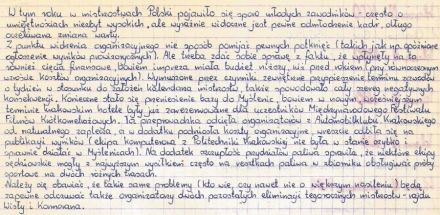 W tym roku w mistrzostwach Polski pojawiło się sporo młodych zawodników - często o
umiejętnościach niezbyt wysokich, ale wyraźnie widoczne jest pewne odmłodzenie kadr, długo
oczekiwana zmiana warty.
Z punktu widzenia organizacyjnego nie sposób pominąć pewnych potknięć (takich jak np. opóźnione
ogłoszenie wyników prowizorycznych). Ale trzeba zdać sobie sprawę z faktu, że wpłynęły na to
również cięcia finansowe, budżet impreza miała budżet niższy, niż przed rokiem (przy równoczesnym
wzroście kosztów organizacyjnych). Wymuszone przez czynniki zewnętrzne przyspieszenie terminu zawodów
o tydzień w stosunku do założeń kalendarza mistrzostw, także spowodowało cały szereg negatywnych
konsekwencji. Konieczne stało się przeniesienie bazy do Myślenic, bowiem w nowym, wcześniejszym
terminie krakowskie hotele były już zarezerwowane dla uczestników Międzynarodowego Festiwalu
Filmów Krótkometrażowych. Ta przeprowadzka odcięła organizatorów z Automobilklubu Krakowskiego
od naturalnego zaplecza, a w dodatku podniosła koszty organizacyjne, wreszcie odbiła się na
publikacji wyników (ekipa komputerowa z Politechniki Krakowskiej nie była w stanie szybko i
sprawnie działać w Myślenicach). Na dodatek szczupłość przydziałów paliwa sprawiła, że niektóre ekipy
sędziowskie miały z najwyższym wysiłkiem często na resztkach paliwa w zbiorniku obsługiwać próby
sportowe na dwóch różnych trasach.
Należy się obawiać, że takie same problemy (kto wie, czy nawet nie o większym nasileniu) będą
zapewne odczuwać także organizatorzy dwóch pozostałych eliminacji tegorocznych mistrzostw - rajdu
Wisły i Kormorana.